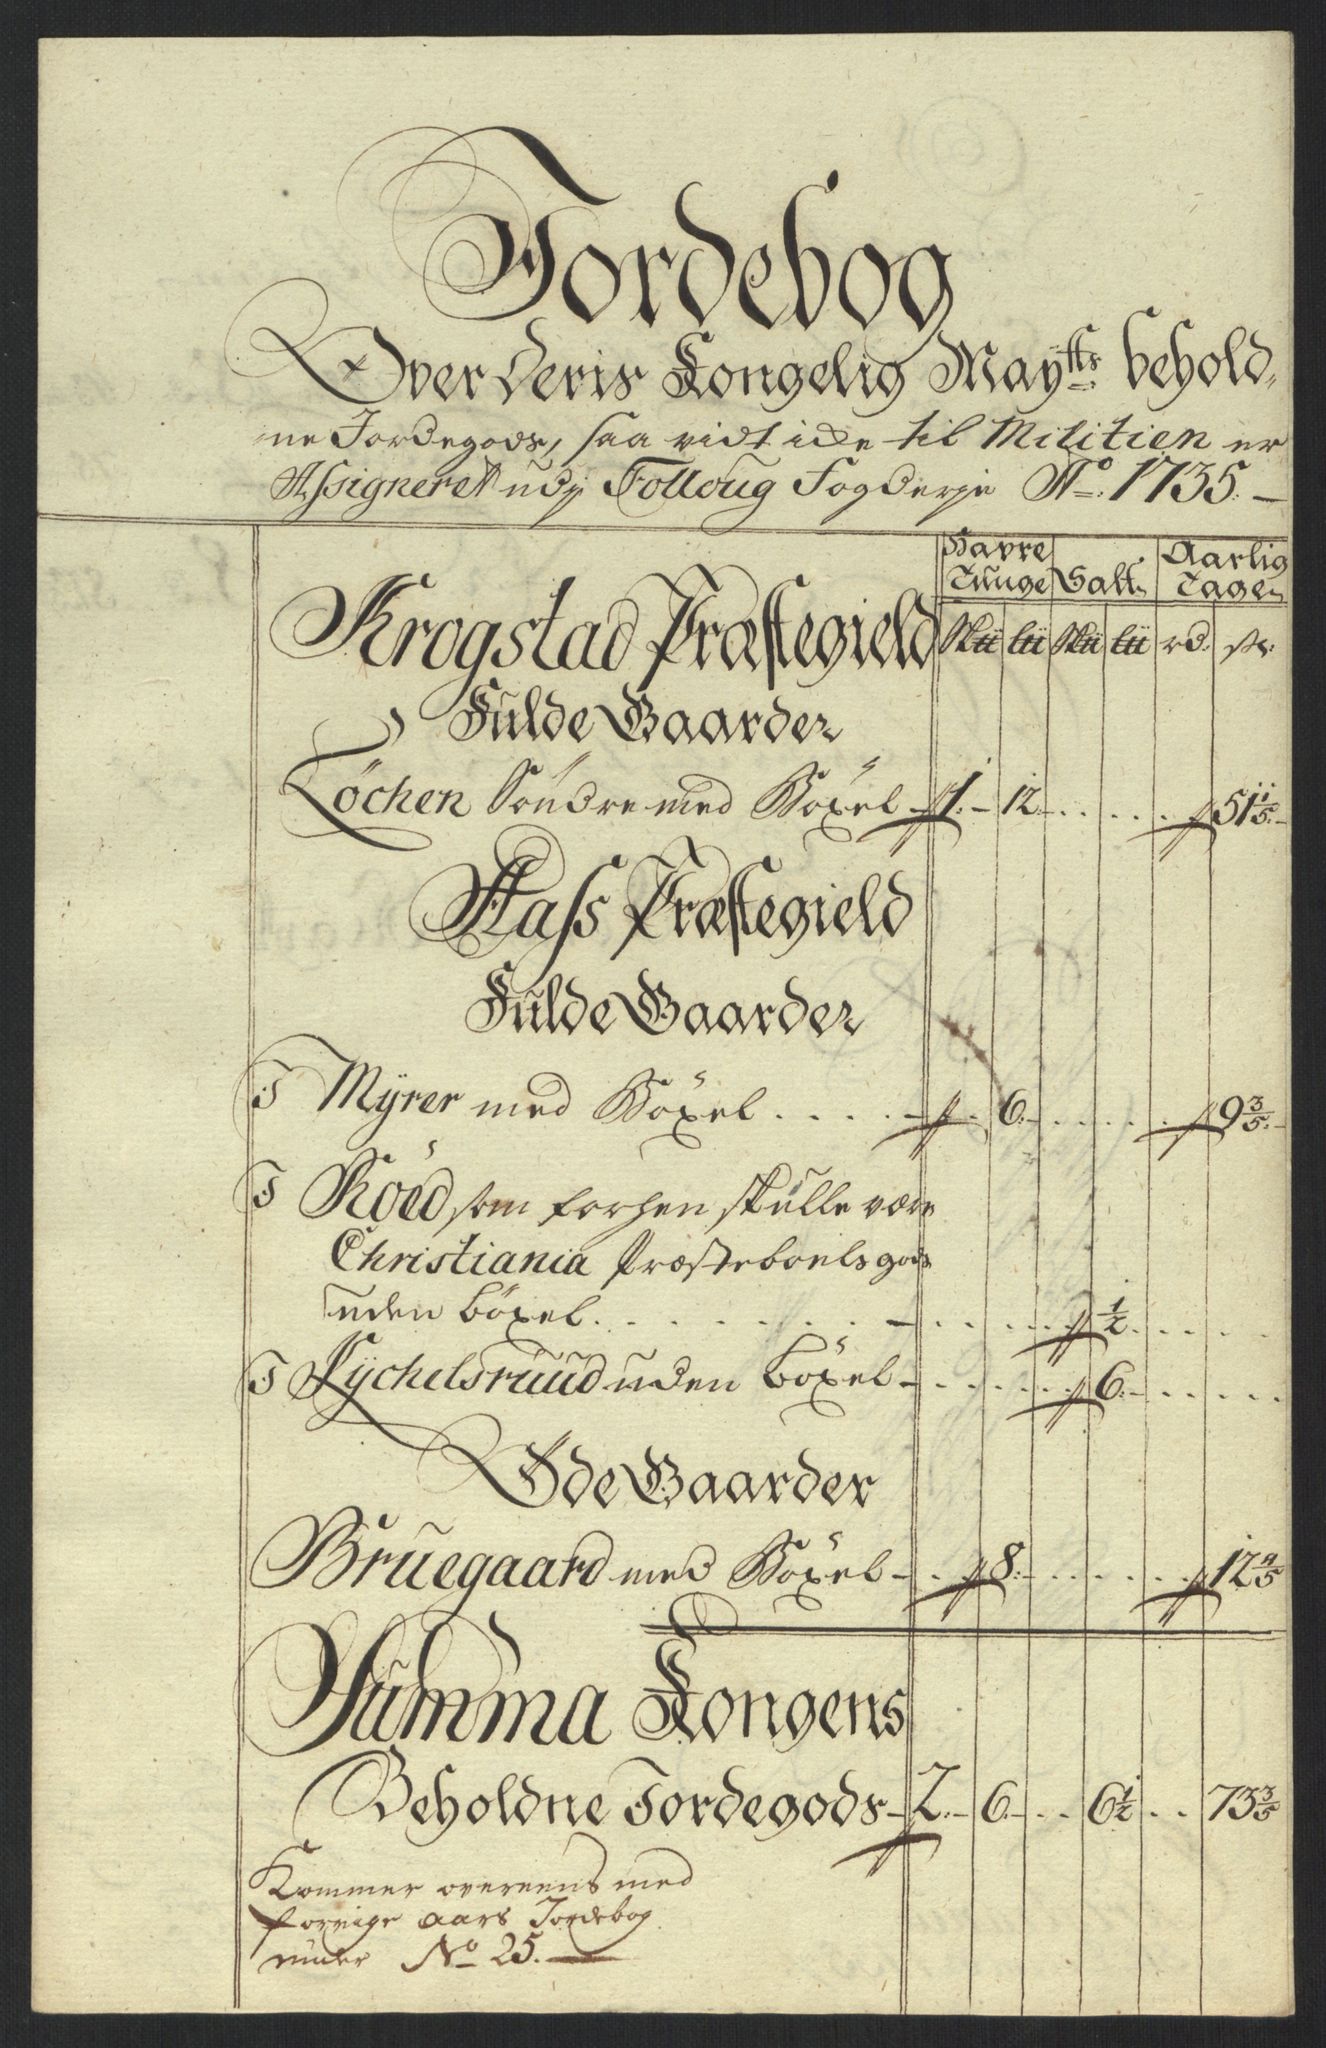 Jordebog
Over Deris Kongelig Mayᵗᵗˢ behold,
ne Jordegods, saa vidt icke til Militien er
Assigneret udj Folloug Fogderje Aº. 1735. –
Havre Tunge Salt Aarlig Tage
Krogstad Præstegield Skü lü Skü lü rd. sk:
Fulde Gaarder
Löchen Söndre med Böxel – 1. – 12. – . . . . 51 1/5. –
Aass Præstegield
Fulde Gaarder
J Mÿrer med Böxel . . . . – . 6. – . . . . 9 3/5. –
J Röed som forhen skulle være
Christiania Præsteboels gods
uden böxel. . . . . . . – . . . . 1/2 . . . . .
J Kÿchelsruud uden böxel – . . . . . 6. – . . . . .
Öde Gaarder
Bruegaard med Böxel – . . 8. – . . . . . 12 4/5
Summa Kongens
Beholdne Jordegods – 2. – 6. – . . 6 1/2 . . 73 3/5
Kommer overeens med
forrige aars Jordebog
under Nº 25. –